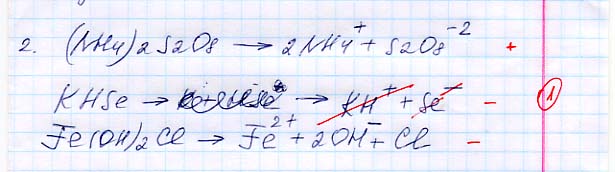 2. (NH4)2S2O8 → 2NH4⁺ + S2O8⁻² +
KHSe → → KH⁺ + Se⁻ − 1
Fe(OH)2Cl → Fe²⁺ + 2OH⁻ + Cl −